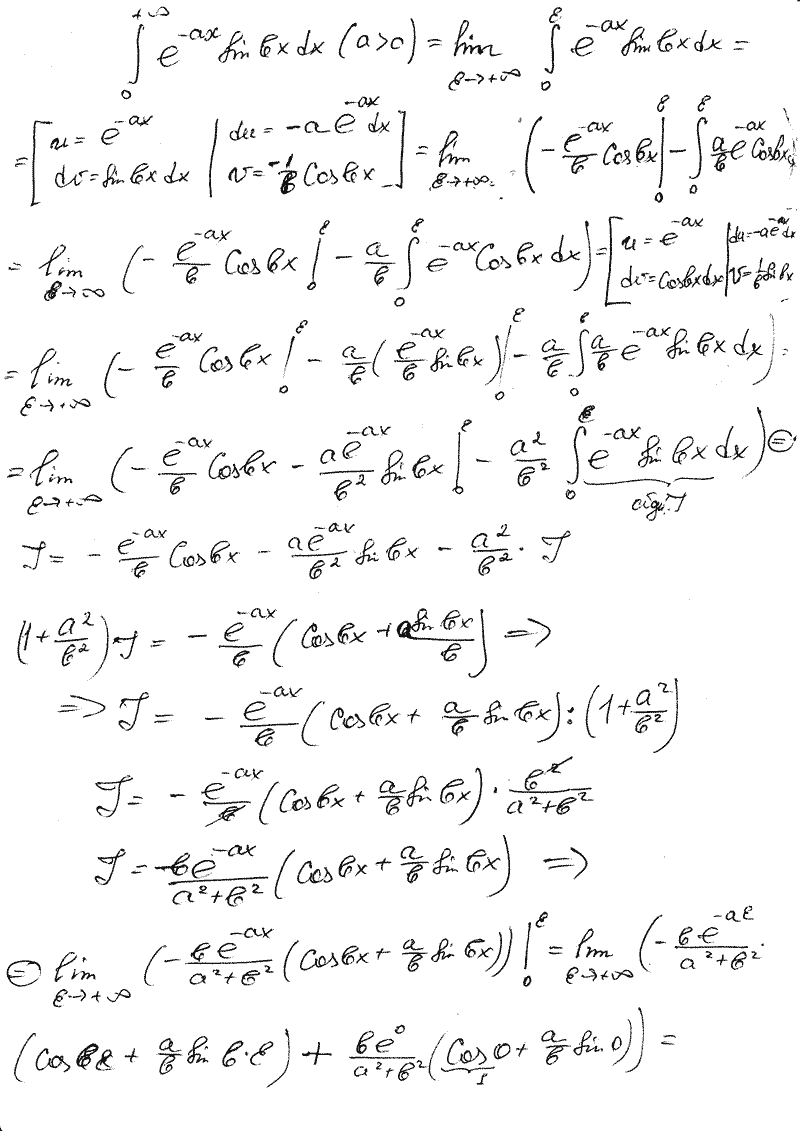 ∫₀^{+∞} e^{-ax} sin bx dx (a>0) = lim_{ε→+∞} ∫₀^ε e^{-ax} sin bx dx =
= [u = e^{-ax} | du = -a e^{-ax} dx; dv = sin bx dx | v = -1/b cos bx] = lim_{ε→+∞} (-e^{-ax}/b cos bx |₀^ε - ∫₀^ε a/b e^{-ax} cos bx
= lim_{ε→∞} (-e^{-ax}/b cos bx |₀^ε - a/b ∫₀^ε e^{-ax} cos bx dx) = [u = e^{-ax} | du = -a e^{-ax} dx; dv = cos bx dx | v = 1/b sin bx
= lim_{ε→+∞} (-e^{-ax}/b cos bx |₀^ε - a/b (e^{-ax}/b sin bx) |₀^ε - a/b ∫₀^ε a/b e^{-ax} sin bx dx) =
= lim_{ε→+∞} (-e^{-ax}/b cos bx - a e^{-ax}/b² sin bx |₀^ε - a²/b² ∫₀^ε e^{-ax} sin bx dx) ⊜
J
J = -e^{-ax}/b cos bx - a e^{-ax}/b² sin bx - a²/b² · J
(1 + a²/b²) · J = -e^{-ax}/b (cos bx + a sin bx/b) =>
=> J = -e^{-ax}/b (cos bx + a/b sin bx) : (1 + a²/b²)
J = -e^{-ax}/b (cos bx + a/b sin bx) · b²/(a²+b²)
J = -b e^{-ax}/(a²+b²) (cos bx + a/b sin bx) =>
⊜ lim_{ε→+∞} (-b e^{-ax}/(a²+b²) (cos bx + a/b sin bx)) |₀^ε = lim_{ε→+∞} (-b e^{-aε}/(a²+b²) ·
(cos bε + a/b sin b·ε) + b e⁰/(a²+b²) (cos 0 + a/b sin 0)) =
1